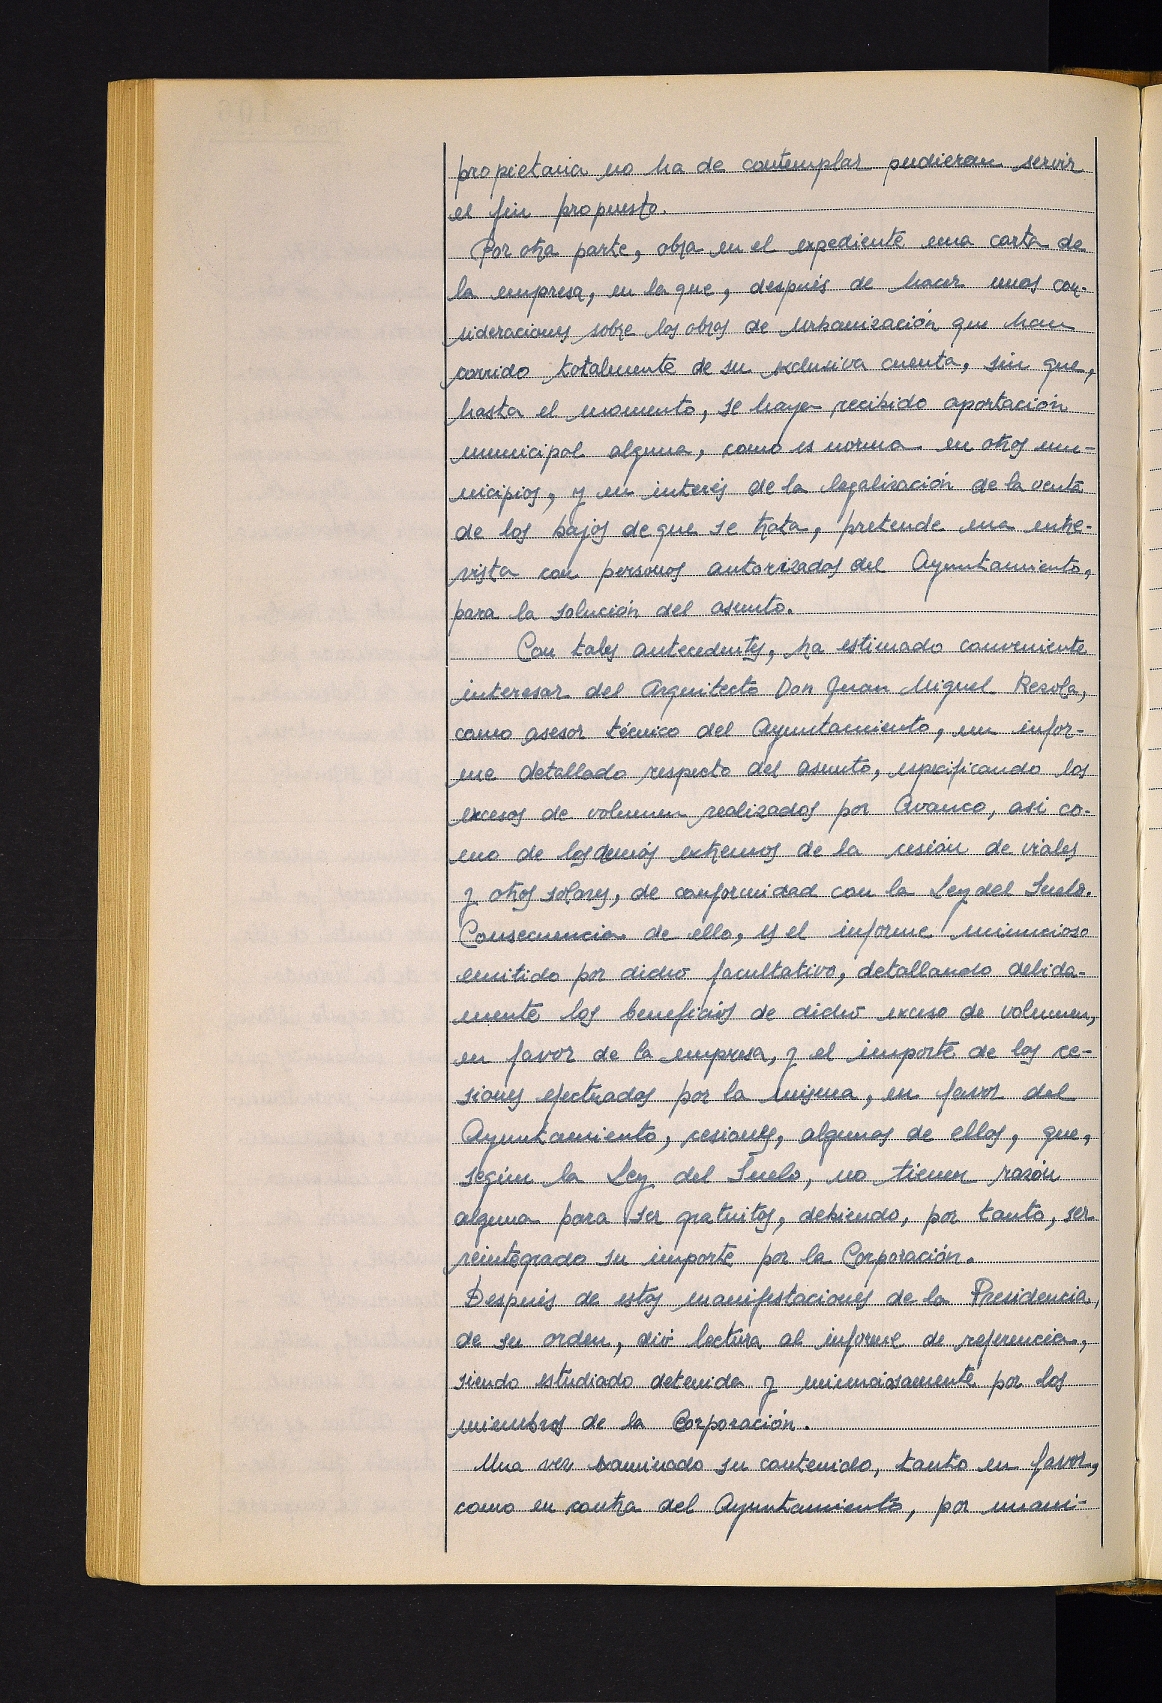 propietaria no ha de contemplar pudieran servir
el fin propuesto.
Por otra parte, obra en el expediente una carta de
la empresa, en la que, después de hacer unas con-
sideraciones sobre las obras de urbanización que han
corrido totalmente de su exclusiva cuenta, sin que,
hasta el momento, se haya recibido aportación
municipal alguna, como es norma en otros mu-
nicipios, y en interés de la legalización de la venta
de los bajos de que se trata, pretende una entre-
vista con personas autorizadas del Ayuntamiento,
para la solución del asunto.
Con tales antecedentes, ha estimado conveniente
interesar del Arquitecto Don Juan Miguel Rezola,
como asesor técnico del Ayuntamiento, un infor-
me detallado respecto del asunto, especificando los
excesos de volumen realizados por Avanco, asi co-
mo de los demás extremos de la cesión de viales
y otros solares, de conformidad con la Ley del Suelo.
Consecuencia de ello, es el informe minucioso
emitido por dicho facultativo, detallando debida-
mente los beneficios de dicho exceso de volumen,
en favor de la empresa, y el importe de las ce-
siones efectuadas por la misma, en favor del
Ayuntamiento, cesiones, algunas de ellas, que,
según la Ley del Suelo, no tienen razón
alguna para ser gratuitas, debiendo, por tanto, ser
reintegrado su importe por la Corporación.
Después de estas manifestaciones de la Presidencia,
de su orden, dió lectura al informe de referencia,
siendo estudiado detenida y minuciosamente por los
miembros de la Corporación.
Una vez examinado su contenido, tanto en favor,
como en contra del Ayuntamiento, por unani-